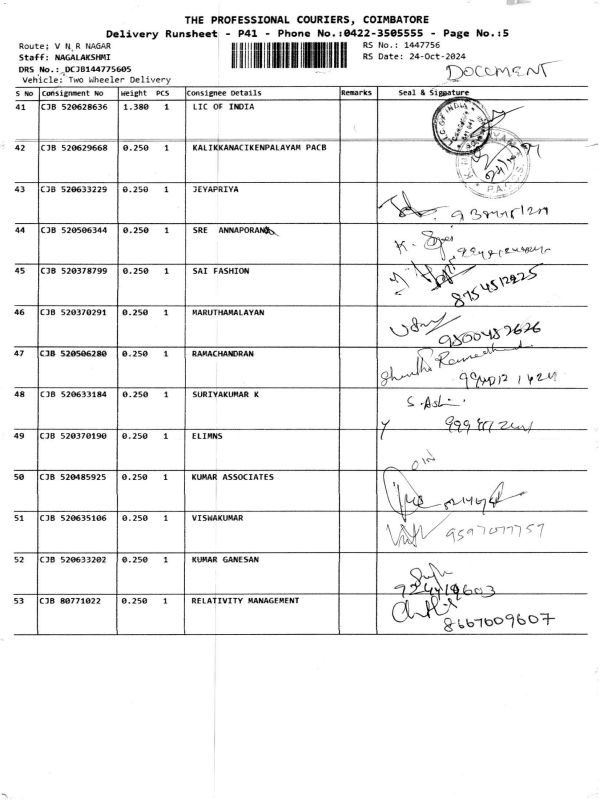 THE PROFESSIONAL COURIERS, COIMBATORE
Delivery Runsheet - P41 - Phone No.:0422-3505555 - Page No.:5
Route: V N R NAGAR
RS No.: 1447756
Staff: NAGALAKSHMI
RS Date: 24-Oct-2024
DRS No.: DCJB144775605
DOCCMENT
Vehicle: Two Wheeler Delivery
S No Consignment No Weight PCS Consignee Details Remarks Seal & Signature
41 CJB 520628636 1.380 1 LIC OF INDIA
LIC OF INDIA
42 CJB 520629668 0.250 1 KALIKKANACIKENPALAYAM PACB
P.A.C.
43 CJB 520633229 0.250 1 JEYAPRIYA
44 CJB 520506344 0.250 1 SRE ANNAPORANA
K.
45 CJB 520378799 0.250 1 SAI FASHION
8754512225
46 CJB 520370291 0.250 1 MARUTHAMALAYAN
9500452626
47 CJB 520506280 0.250 1 RAMACHANDRAN
48 CJB 520633184 0.250 1 SURIYAKUMAR K
S. Ashi
49 CJB 520370190 0.250 1 ELIMNS
50 CJB 520485925 0.250 1 KUMAR ASSOCIATES
51 CJB 520635106 0.250 1 VISWAKUMAR
9597077757
52 CJB 520633202 0.250 1 KUMAR GANESAN
53 CJB 80771022 0.250 1 RELATIVITY MANAGEMENT
8667609607